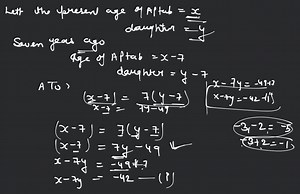 Lett the present age of Aftab = x
daughter = y
Seven years ago
Age of Aftab = x-7
daughter = y-7
ATQ:
(x-7) = 7(y-7)
x-7 = 7y-49
x-7y = -49+7
x-7y = -42 -(i)
(x-7) = 7(y-7)
(x-7) = 7y-49
x-7y = -49+7
x-7y = -42 -(1)
-3-2 = -5
-3+2 = -1